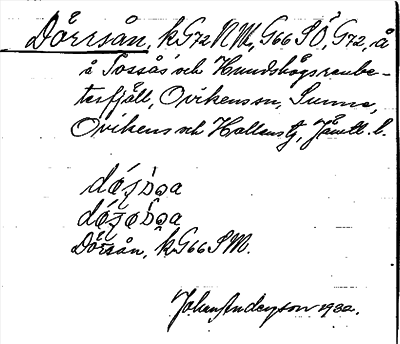 Dörrsån, kG72NM, G66SÖ, G72, å
i Tossås och Hundshögsrenbe-
tesfjäll, Ovikens sn, Sunne,
Ovikens och Hallens tg, Jämtl. l.
Dörrsån, kG66SM.
Johan Anderson 1930.